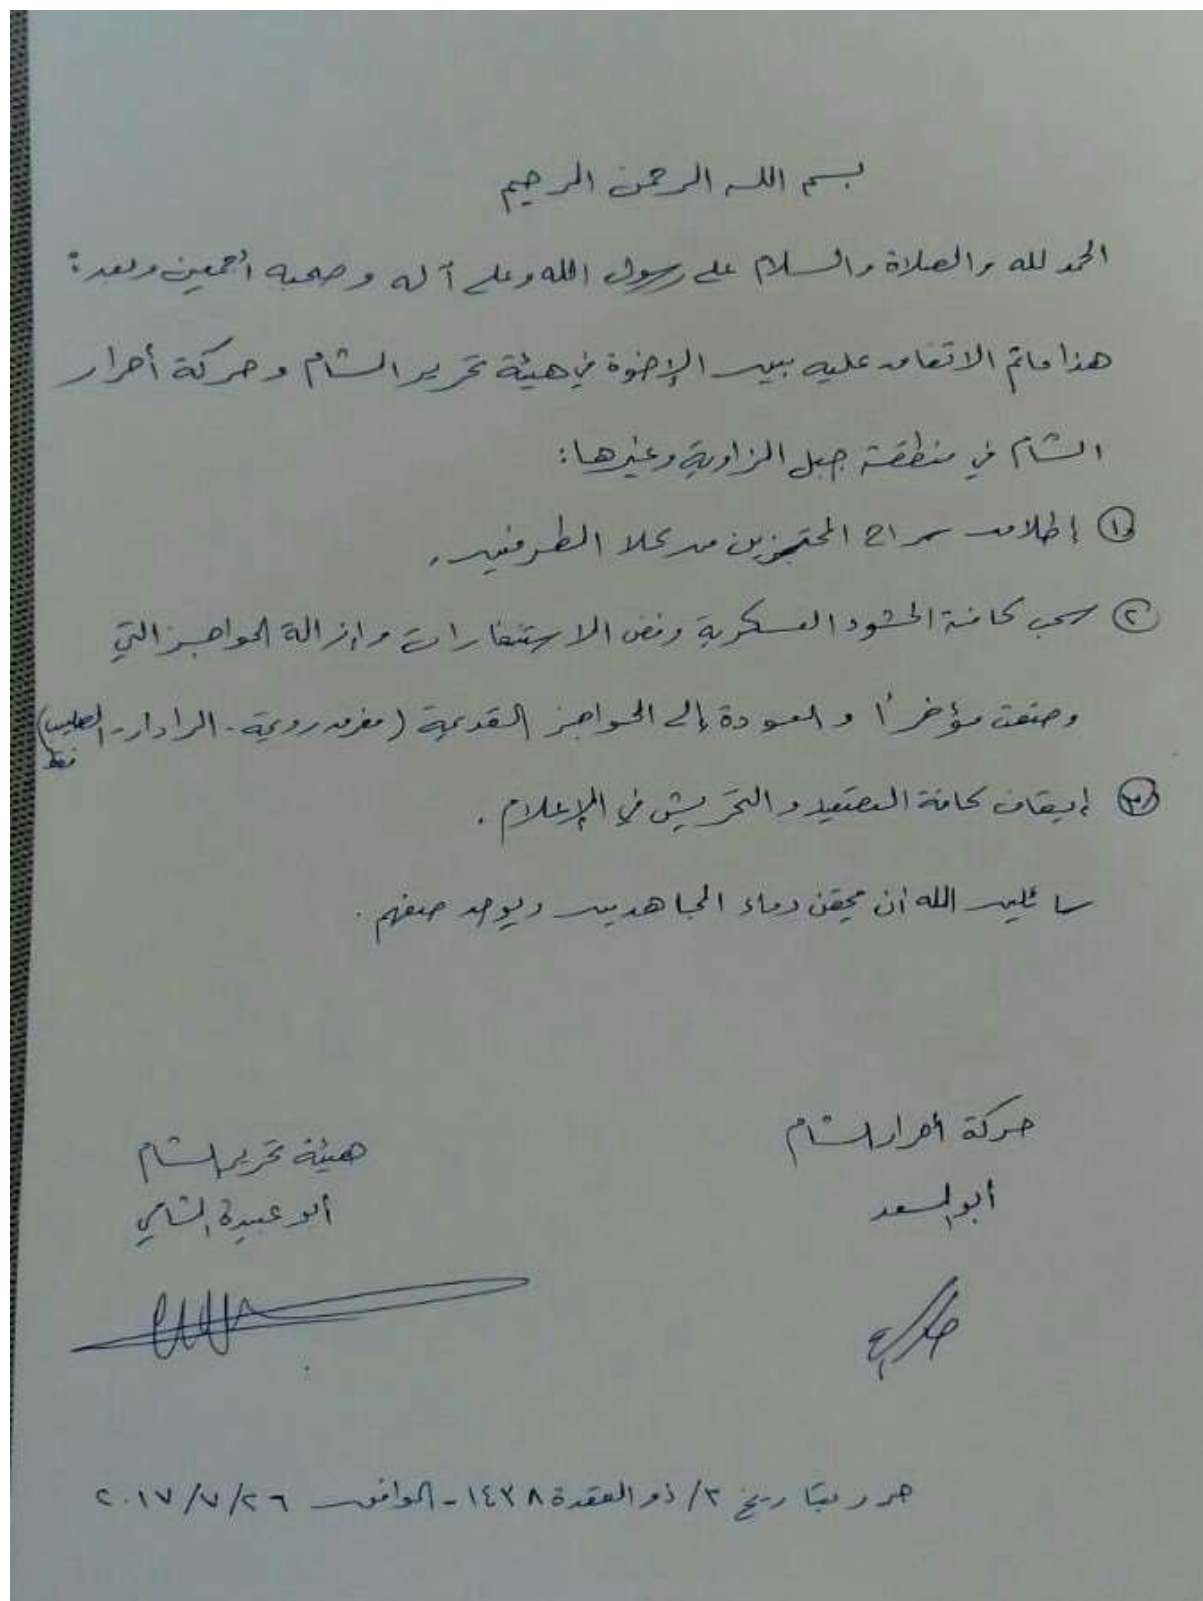 بسم الله الرحمن الرحيم
الحمد لله والصلاة والسلام على رسول الله وعلى آله وصحبه أجمعين وبعد:
هذا ماتم الاتفاق عليه بين الإخوة في هيئة تحرير الشام وحركة أحرار
الشام في منطقة جبل الزاوية وغيرها:
١ إطلاق سراح المحتجزين من كلا الطرفين.
٢ سحب كافة الحشود العسكرية وفض الاستنفارات وإزالة الحواجز التي
وضعت مؤخراً والعودة إلى الحواجز القديمة (مفرق رويحة - الرادار -
فقط
٣ إيقاف كافة التصعيد والتحريش في الإعلام.
سائلين الله أن يحقن دماء المجاهدين ويوحد صفهم.
حركة أحرار الشام
أبو السعد
هيئة تحرير الشام
أبو عبيدة الشامي
حرر بتاريخ ٣/ ذو القعدة ١٤٣٨ - الموافق ٢٦/٧/٢٠١٧